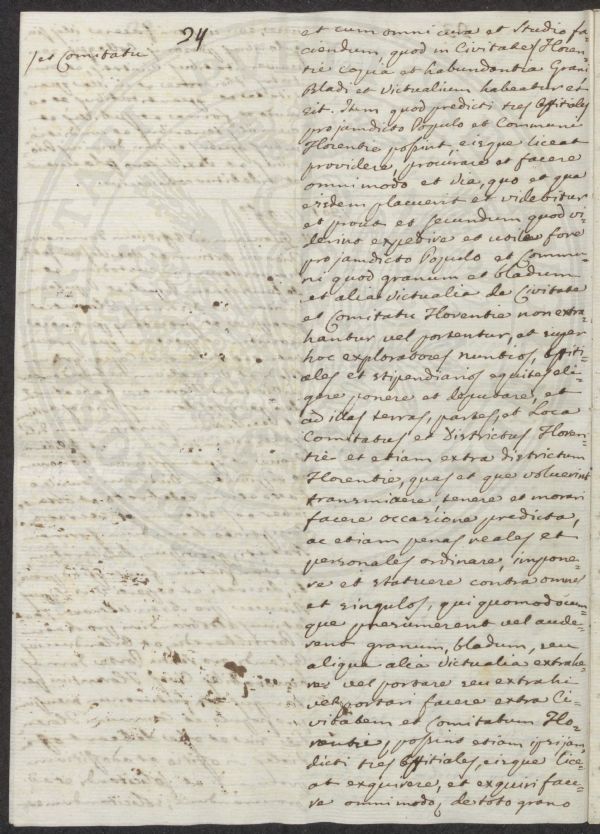 24
/et Comitatu
et cum omni cura et studio fa-
ciendum quod in Civitates Floren-
tie copia et habundantia Grani
Bladi et victualium habeatur et
sit. Item quod predicti tres Offitiales
pro jamdicto Populo et Communi
Florentie possint eisque liceat
providere, procurare et facere
omni modo et via, quo et qua
eisdem placuerit et videbitur
et prout et secundum quod vi-
derint expedire et utile fore
pro jamdicto Populo et Commu-
ni quod granum et bladum
et alia victualia de Civitate
et Comitatu Florentie non extra-
hantur vel portentur, et super
hoc exploratores nuntios, Offiti-
ales et stipendiarios equites eli-
gere ponere et deputare, et
ad illas terras, partes, et Loca
Comitatus et Districtus Floren-
tie et etiam extra districtum
Florentie, quas et que voluerint
transmictere tenere et morari
facere occazione predicta,
ac etiam penas reales et
personales ordinare, impone-
re et statuere contra omnes
et singulos, qui quomodocun-
que presumerent vel aude-
rent granum, bladum, seu
aliqua alia victualia extrahe-
re, vel portare seu extrahi
vel portari facere extra Ci-
vitatem et Comitatum Flo-
rentie, possint etiam ipsi jam
dicti tres Offitiales, eisque lice-
at exquirere, et exquiri face-
re omni modo, de toto grano